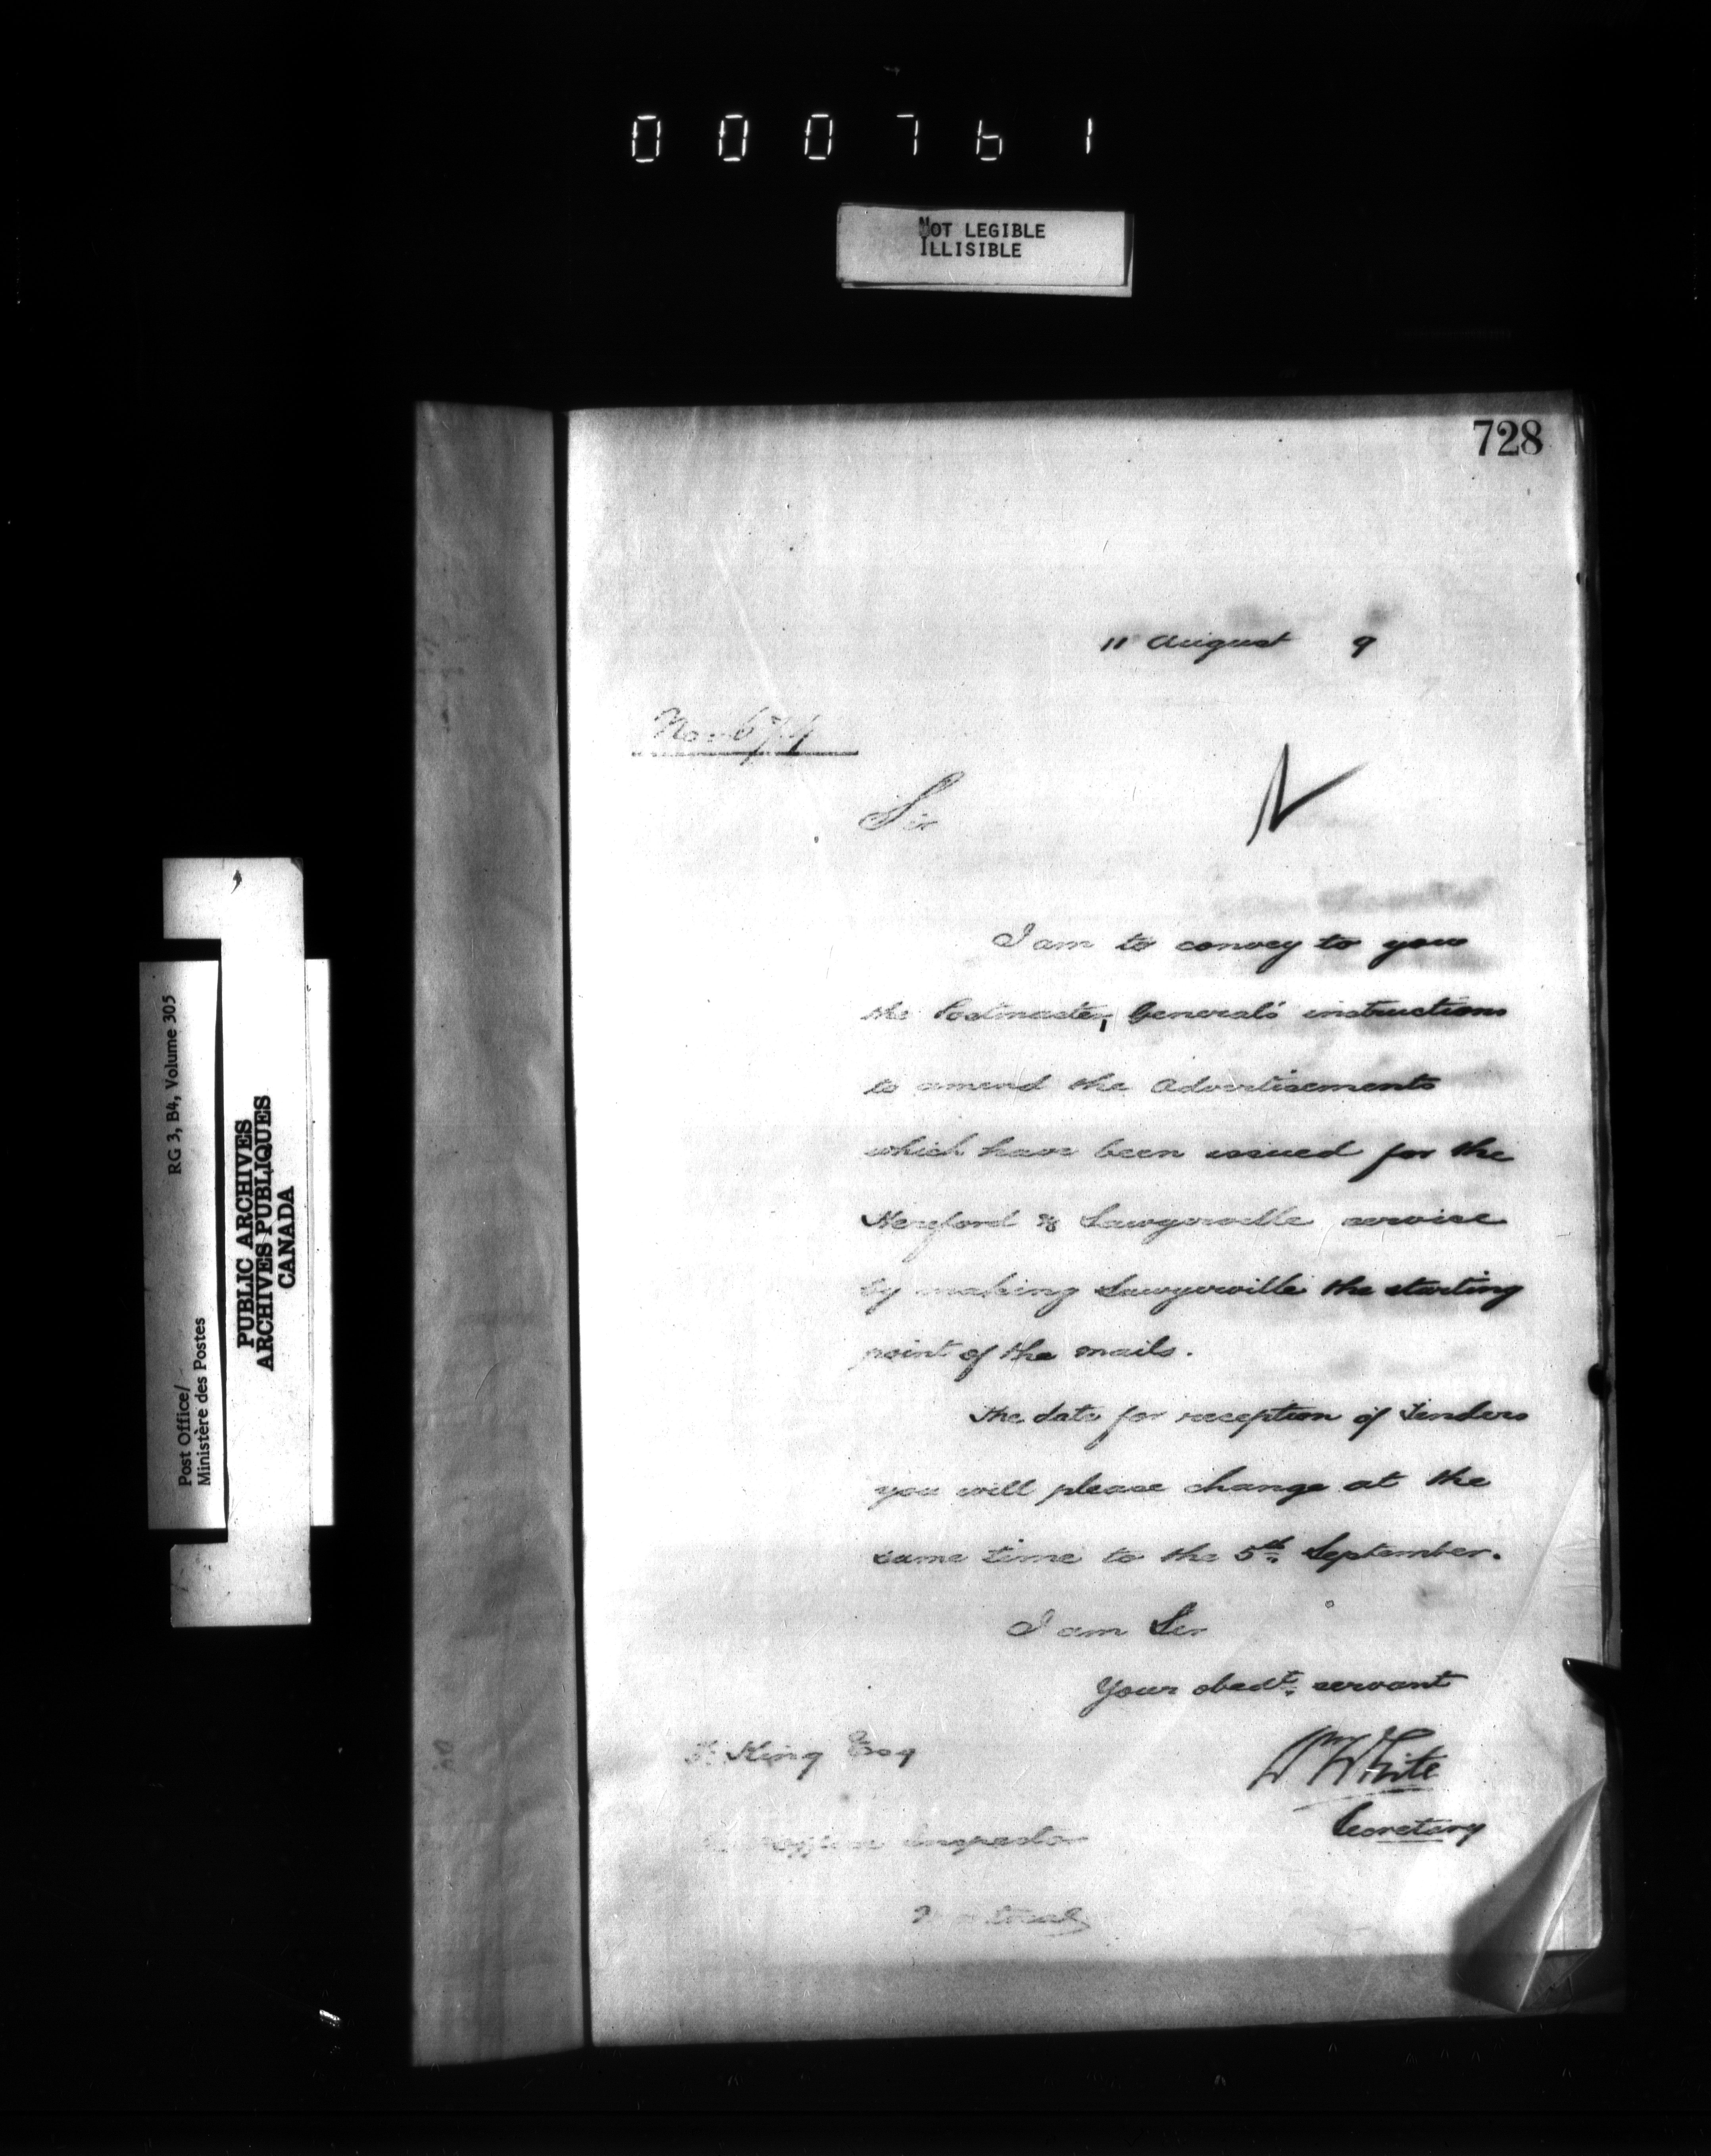 000761
NOT LEGIBLE
ILLISIBLE
728
11 August 9
No.
Sir
N
I am to convey to you
the Postmaster, General's instructions
to amend the Advertisements
which have been issued for the
Hereford & Sawyerville service
by making Sawyerville the starting
point of the mails.
The date for reception of Tenders
you will please change at the
same time to the 5th September.
I am Sir
Your obedt. servant
Wm White
Secretary
King Esq
office Inspector
Montreal
RG 3, B4, Volume 305
Post Office/
Ministère des Postes
PUBLIC ARCHIVES
ARCHIVES PUBLIQUES
CANADA